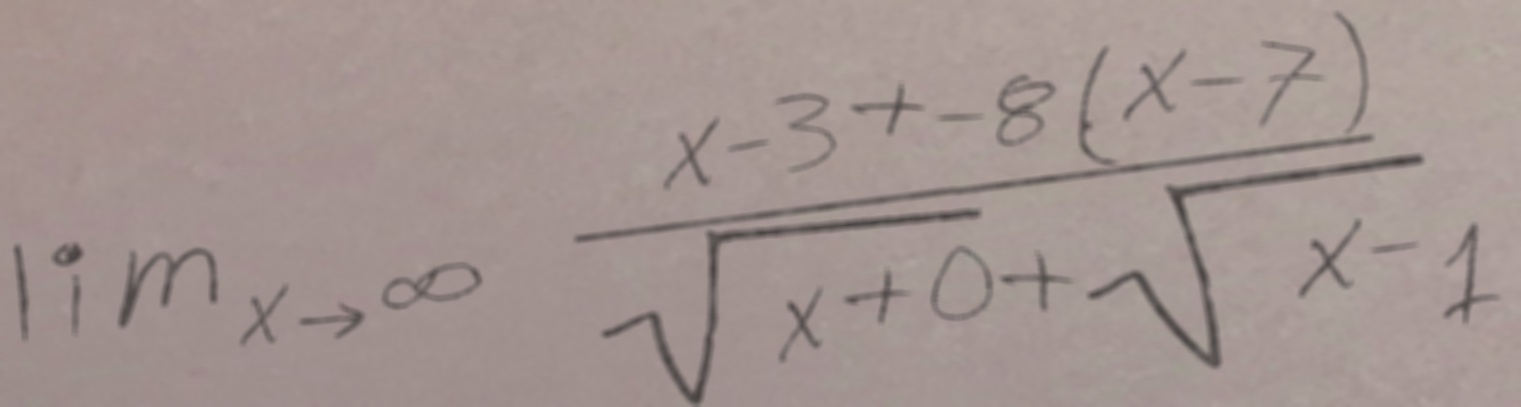 lim_{x→∞} \frac{x-3+-8(x-7)}{\sqrt{x+0}+\sqrt{x-1}}